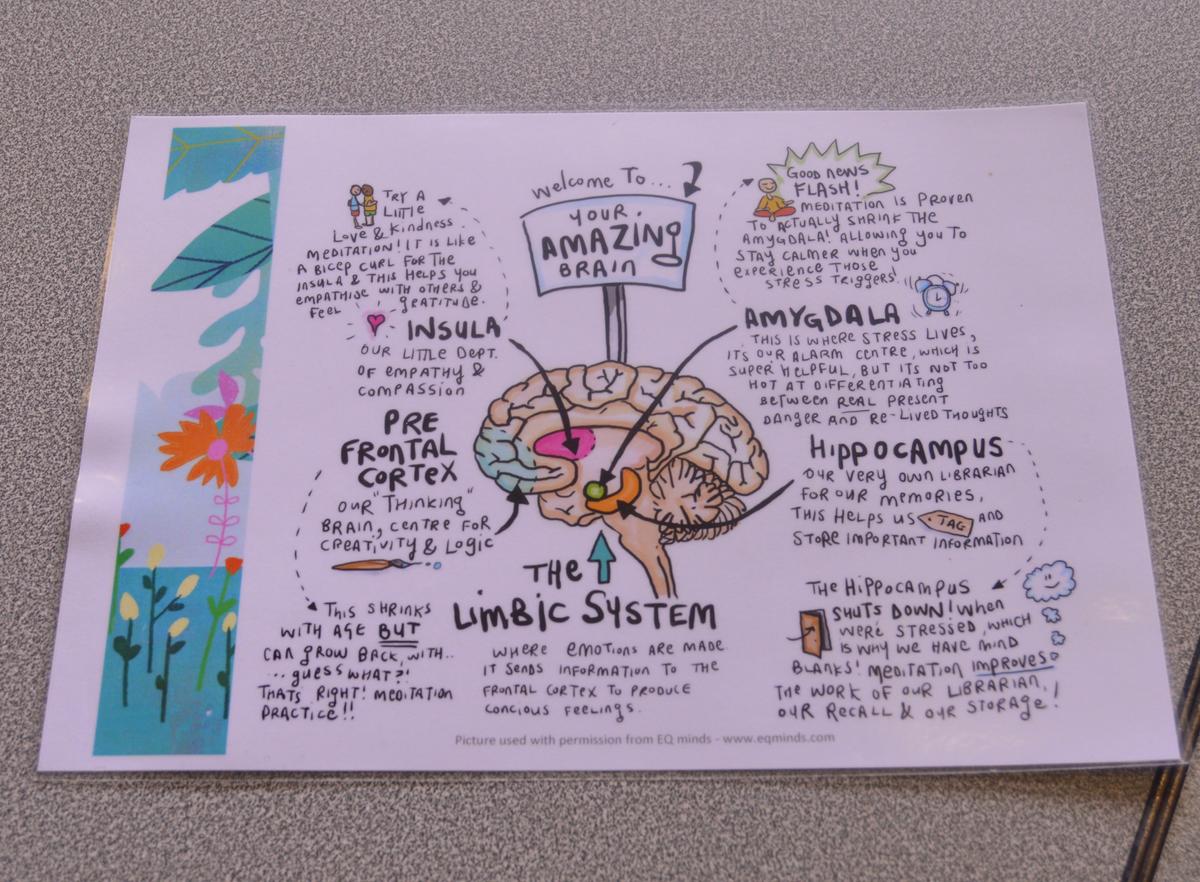 Welcome To...
YOUR
AMAZING
BRAIN
TRY A
LITTLE
LOVE & KINDNESS
MEDITATION! IT IS LIKE
A BICEP CURL FOR THE
INSULA & THIS HELPS YOU
EMPATHISE WITH OTHERS &
FEEL GRATITUDE.
INSULA
OUR LITTLE DEPT.
OF EMPATHY &
COMPASSION
PRE
FRONTAL
CORTEX
OUR "THINKING"
BRAIN, CENTRE FOR
CREATIVITY & LOGIC
THIS SHRINKS
WITH AGE BUT
CAN GROW BACK, WITH..
...GUESS WHAT?!
THATS RIGHT! MEDITATION
PRACTICE!!
THE
LIMBIC SYSTEM
WHERE EMOTIONS ARE MADE.
IT SENDS INFORMATION TO THE
FRONTAL CORTEX TO PRODUCE
CONCIOUS FEELINGS.
GOOD NEWS
FLASH!
MEDITATION IS PROVEN
TO ACTUALLY SHRINK THE
AMYGDALA! ALLOWING YOU TO
STAY CALMER WHEN YOU
EXPERIENCE THOSE
STRESS TRIGGERS!
AMYGDALA
THIS IS WHERE STRESS LIVES,
ITS OUR ALARM CENTRE, WHICH IS
SUPER HELPFUL, BUT ITS NOT TOO
HOT AT DIFFERENTIATING
BETWEEN REAL PRESENT
DANGER AND RE-LIVED THOUGHTS
HIPPOCAMPUS
OUR VERY OWN LIBRARIAN
FOR OUR MEMORIES,
THIS HELPS US TAG AND
STORE IMPORTANT INFORMATION
THE HIPPOCAMPUS
SHUTS DOWN! WHEN
WERE STRESSED, WHICH
IS WHY WE HAVE MIND
BLANKS! MEDITATION IMPROVES
THE WORK OF OUR LIBRARIAN,
OUR RECALL & OUR STORAGE!
Picture used with permission from EQ minds - www.eqminds.com